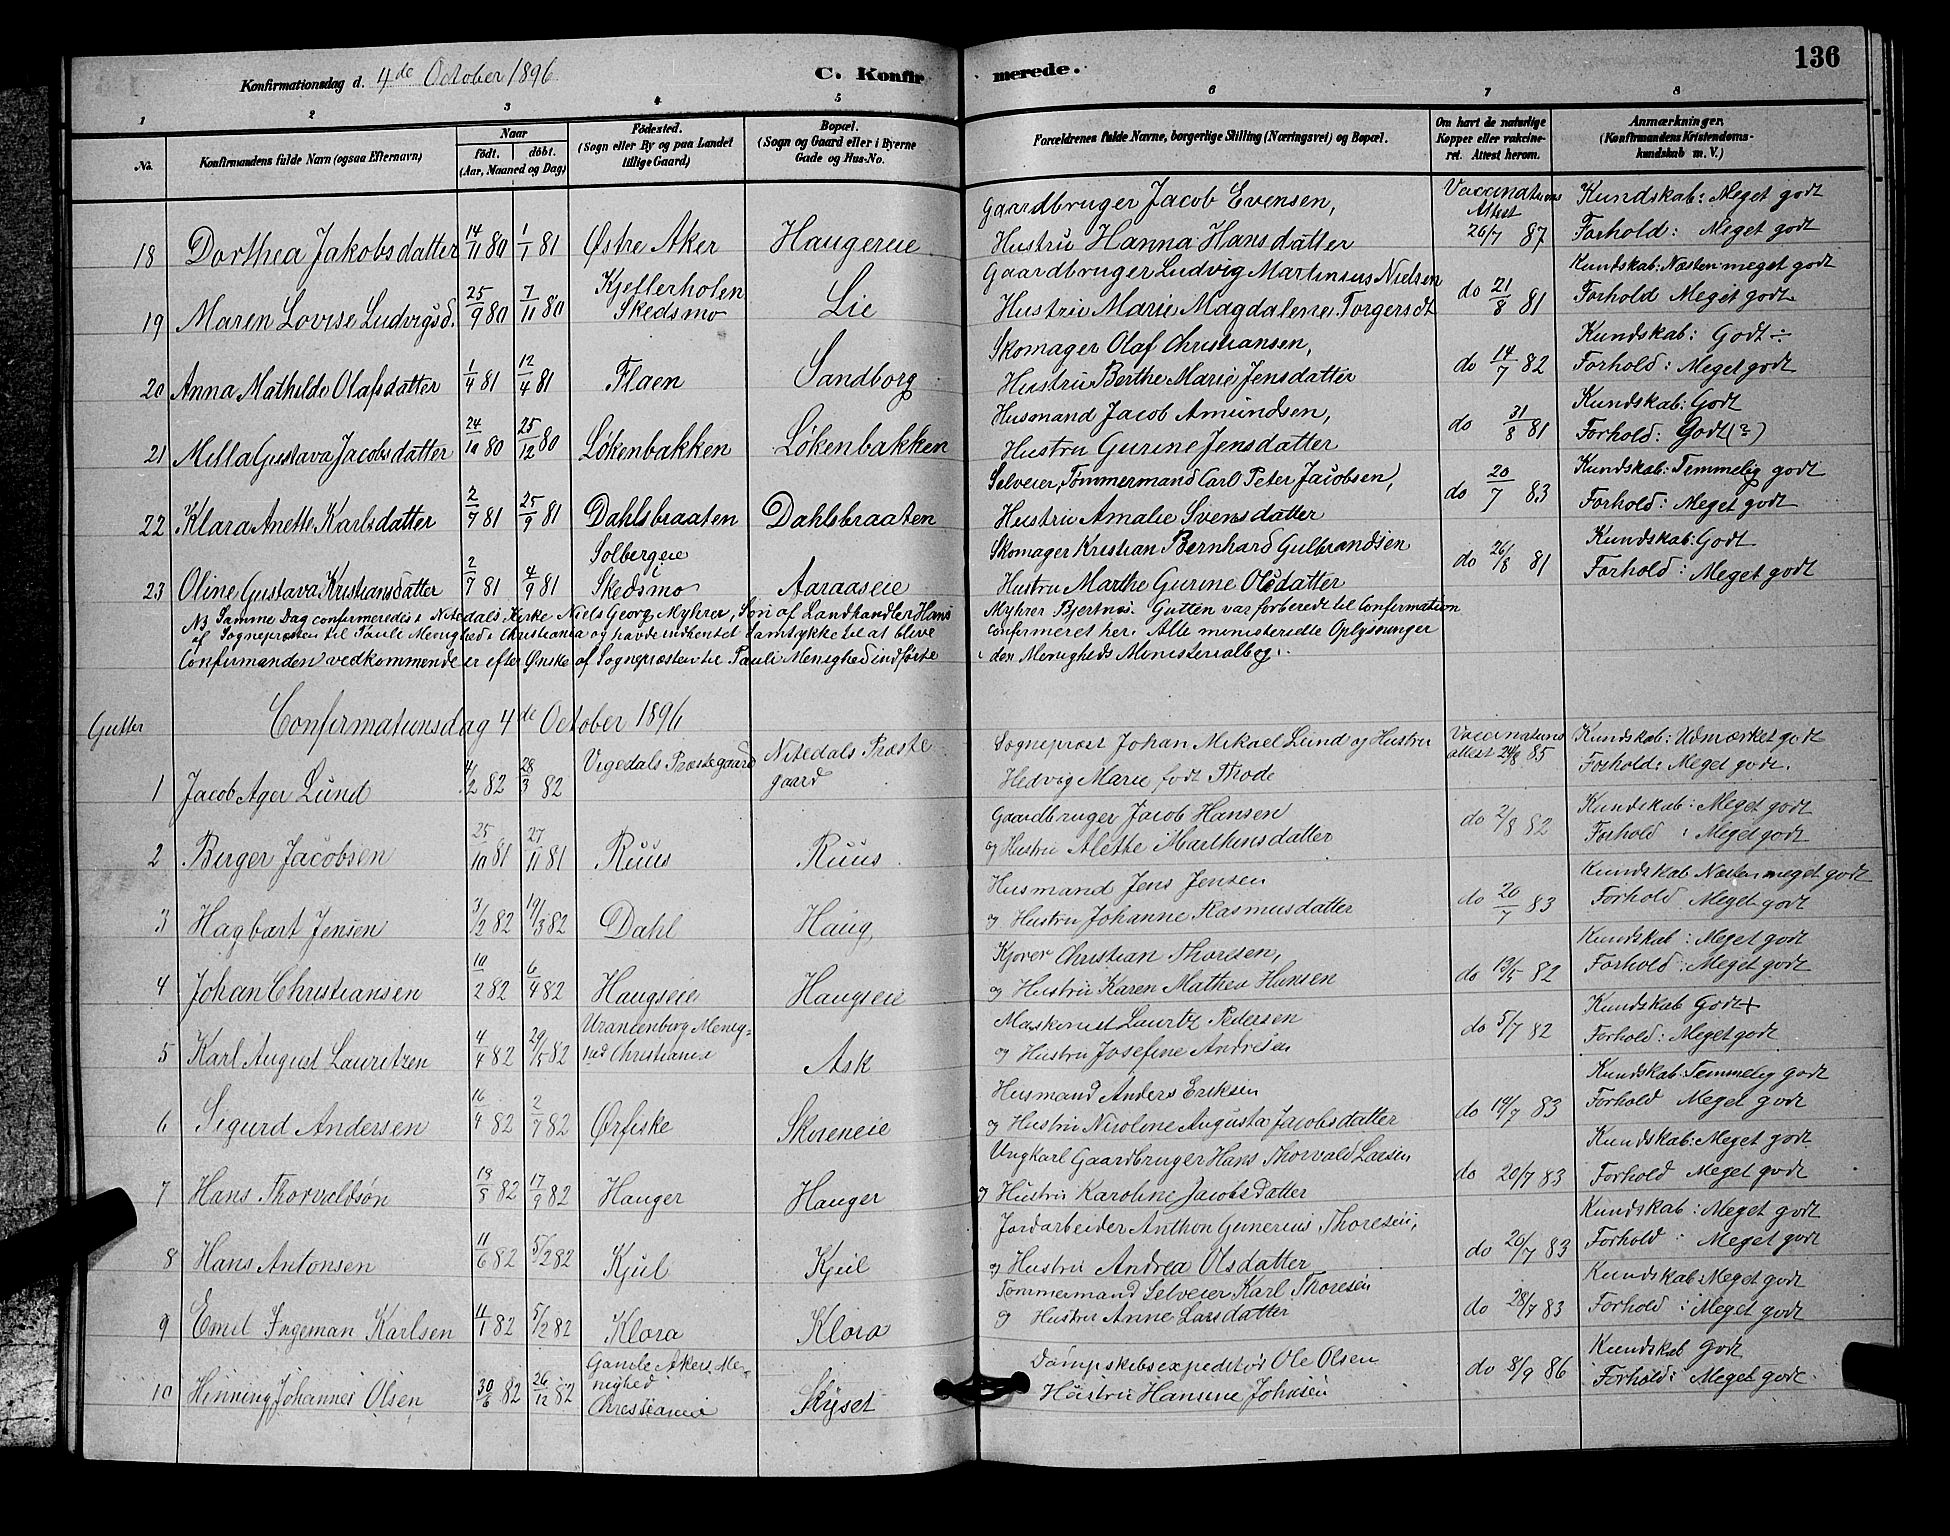 136
Konfirmationsdag d. 4de October 1896
C. Konfirmerede.
1 2 3 4 5 6 7 8
No.
Konfirmandens fulde Navn (ogsaa Efternavn)
Naar
født, døbt.
(Aar, Maaned og Dag)
Fødested.
(Sogn eller By og paa Landet
tillige Gaard)
Bopæl.
(Sogn og Gaard eller i Byerne
Gade og Hus-No.
Forældrenes fulde Navne, borgerlige Stilling (Næringsvei) og Bopæl.
Om havt de naturlige
Kopper eller vakcine-
ret. Attest herom.
Anmærkninger.
(Konfirmandens Kristendoms-
kundskab m. V.)
18 Dorthea Jakobsdatter 14/11 80 1/1 81 Østre Aker Haugereie
Gaardbruger Jacob Evensen,
Hustru Hanna Hansdatter
Vaccinations
Attest
26/7 87
Kundskab: Meget godt
Forhold: Meget godt
19 Maren Lovise Ludvigsd. 25/9 80 7/11 80 Kjellerholen
Skedsmo
Lie
Gaardbruger Ludvig Martinius Nielsen
Hustru Marie Magdalene Torgersdt
do 21/8 81
Kundskab: Næsten meget godt
Forhold Meget godt
20 Anna Mathilde Olafsdatter 1/4 81 12/4 81 Flaen Sandborg
Skomager Olaf Christiansen,
Hustru Berthe Marie Jensdatter
do 14/7 82
Kundskab: Godt ÷
Forhold: Meget godt
21 Milla Gustava Jacobsdatter 24/10 80 25/12 80 Løkenbakken Løkenbakken
Husmand Jacob Amundsen,
Hustru Gurine Jensdatter
do 31/8 81
Kundskab: Godt
Forhold: Godt (?)
22 Klara Anette Karlsdatter 2/7 81 25/9 81 Dahlsbraaten Dahlsbraaten
Selveier, Tømmermand Carl Peter Jacobsen,
Hustru Amalie Svensdatter
do 20/7 83
Kundskab: Temmelig godt
Forhold: Meget godt
23 Oline Gustava Kristiansdatter 2/7 81 4/9 81 Solbergeie
Skedsmo
Aaraaseie
Skomager Kristian Bernhard Gulbrandsen
Hustru Marthe Gurine Olsdatter
do 26/8 81
Kundskab: Godt
Forhold: Meget godt
NB Samme Dag confirmeredes i Nitedals Kirke Niels Georg Myhrer, Søn af Landhandler Hans Myhrer Bjertnes. Gutten var forberedt til Confirmation
af Sognepræsten til Pauli Menighed i Christiania og havde indhentet Samtykke til at blive confirmeret her. Alle ministerielle Oplysninger
Confirmanden vedkommende er efter Ønske af Sognepræsten til Pauli Menighed indførte i den Menigheds Ministerialbog.
Gutter Confirmationsdag 4de October 1896
1 Jacob Ager Lund 4/2 82 28/3 82 Vegedals Præstegaard Nitedals Præste
gaard
Sognepræst Johan Mikael Lund og Hustru
Hedvig Marie født Thode
Vaccinations
attest 24/8 85
Kundskab: Udmærket godt
Forhold: Meget godt.
2 Birger Jacobsen 25/10 81 27/11 81 Ruus Ruus
Gaardbruger Jacob Hansen
og Hustru Alethe Marthinsdatter
do 2/8 82
Kundskab: Meget godt
Forhold: Meget godt
3 Hagbart Jensen 3/2 82 19/3 82 Dahl Haug
Husmand Jens Jensen
og Hustru Johanne Rasmusdatter
do 20/7 83
Kundskab Næsten meget godt
Forhold Meget godt
4 Johan Christiansen 10/2 82 6/4 82 Haugseie Haugseie
Kjører Christian Thoresen,
og Hustru Karen Mathea Hansen
do 13/5 82
Kundskab: Meget godt
Forhold: Meget godt
5 Karl August Lauritzen 4/4 82 29/5 82 Uranienborg Menig-
hed Christiania
Ask
Maskinist Lauritz Pedersen
og Hustru Josefine Andresen
do 5/7 82
Kundskab Godt +
Forhold: Meget godt
6 Sigurd Andersen 16/4 82 2/7 82 Ørfiske Skøieneie
Husmand Anders Eriksen
og Hustru Nicoline Augusta Jacobsdatter
do 19/7 83
Kundskab: Temmelig godt
Forhold Meget godt
7 Hans Thorvaldsøn 13/8 82 17/9 82 Hauger Hauger
Ungkarl Gaardbruger Hans Thorvald Larsen
og Hustru Karoline Jacobsdatter
do 20/7 83
Kundskab: Meget godt
Forhold Meget godt
8 Hans Antonsen 11/6 82 5/2 82 Kjul Kjul
Jordarbeider Anthon Gunerius Thoresen,
og Hustru Andrea Olsdatter
do 20/7 83
Kundskab: Meget godt
Forhold: Meget godt
9 Emil Ingeman Karlsen 11/1 82 5/2 82 Klora Klora
Tømmermand Selveier Karl Thoresen
og Hustru Anne Larsdatter
do 28/7 83
Kundskab: Meget godt
Forhold: Meget godt
10 Henning Johannes Olsen 30/6 82 26/12 82 Gamle Akers Me-
nighed
Christiania
Skyset
Dampskibsexpeditør Ole Olsen
Hustru Hansine Johnsen
do 8/9 86
Kundskab Godt
Forhold: Meget godt.